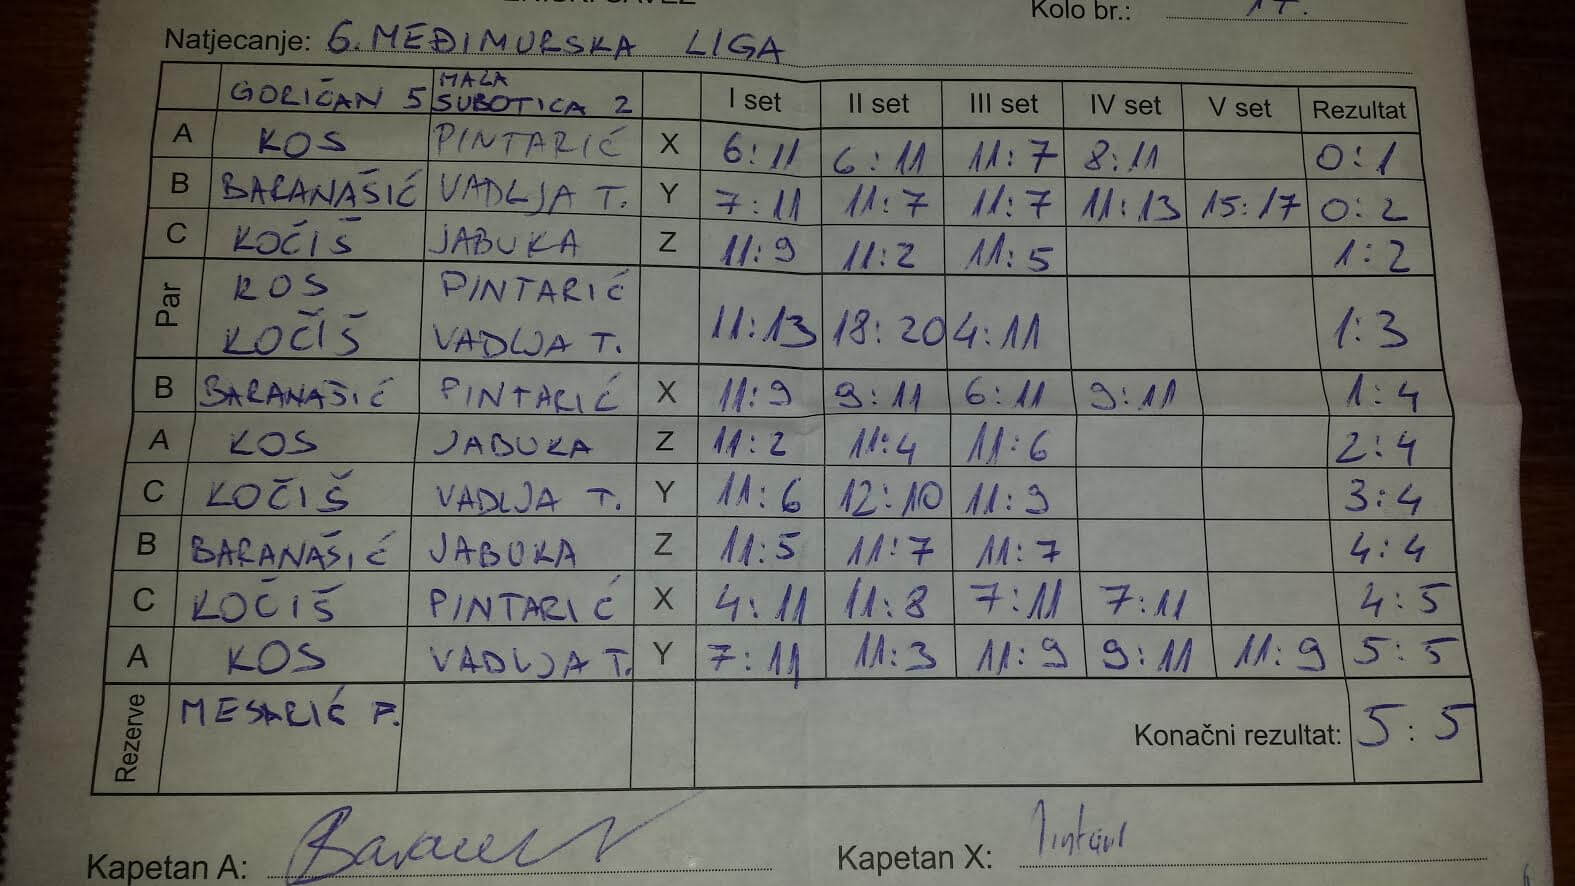 Kolo br.:
Natjecanje: 6. MEĐIMURSKA LIGA
GORIČAN 5 MALA SUBOTICA 2 I set II set III set IV set V set Rezultat
A KOS PINTARIĆ X 6:11 6:11 11:7 8:11 0:1
B BARANAŠIĆ VADLJA T. Y 7:11 11:7 11:7 11:13 15:17 0:2
C KOČIŠ JABUKA Z 11:9 11:2 11:5 1:2
Par KOS PINTARIĆ
KOČIŠ VADLJA T. 11:13 18:20 4:11 1:3
B BARANAŠIĆ PINTARIĆ X 11:9 9:11 6:11 9:11 1:4
A KOS JABUKA Z 11:2 11:4 11:6 2:4
C KOČIŠ VADLJA T. Y 11:6 12:10 11:9 3:4
B BARANAŠIĆ JABUKA Z 11:5 11:7 11:7 4:4
C KOČIŠ PINTARIĆ X 4:11 11:8 7:11 7:11 4:5
A KOS VADLJA T. Y 7:11 11:3 11:9 9:11 11:9 5:5
Rezerve MESARIĆ P. Konačni rezultat: 5:5
Kapetan A: Kapetan X: